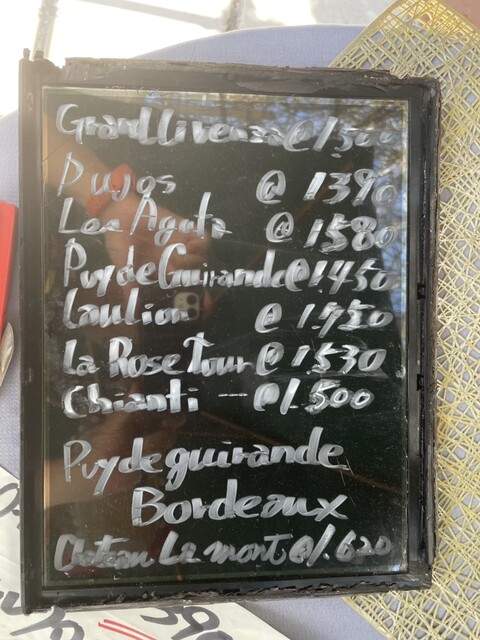 Grand Livenza @1,500
Pujos @ 1390
Lea Agata @ 1580
Puy de Guirande @1.450
Laulion @ 1.950
La Rose Tour @ 1530
Chianti — @1.500
Puy de guirande
Bordeaux
Chateau La mont @1.620
390